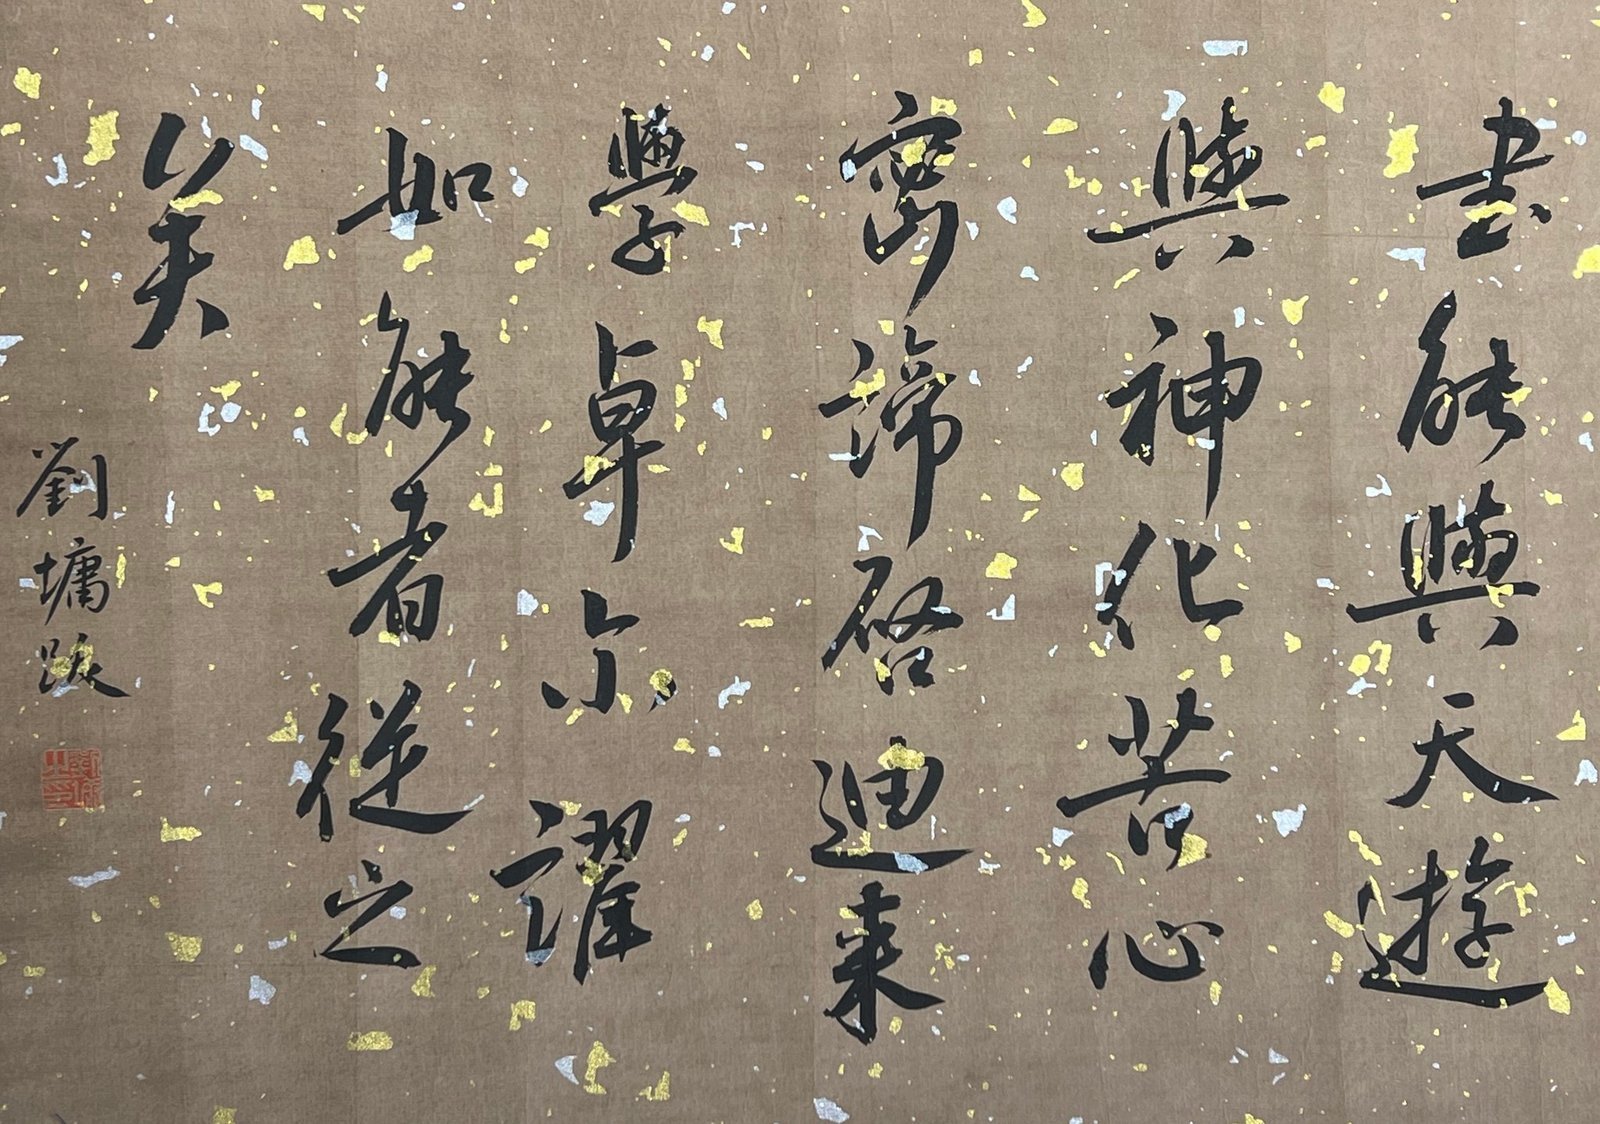 書能與天遊
與神化苦心
密諦啓迪來
學卓尔謹
如能者從之
矣
劉墉跋